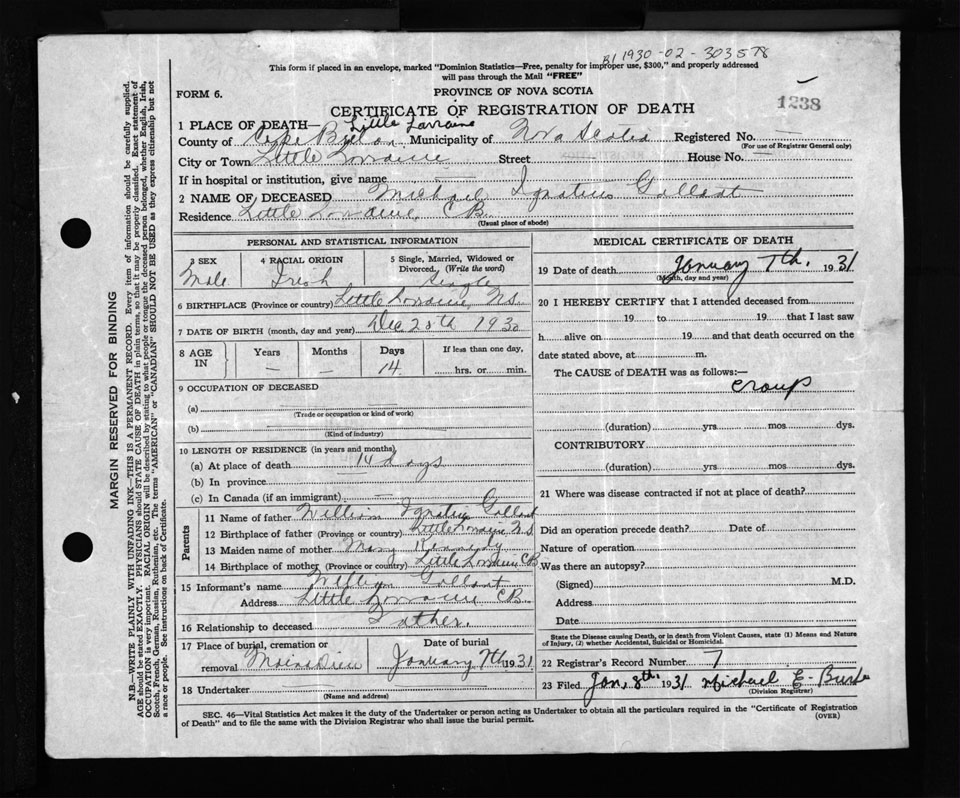 B1 1930-02-303578
This form if placed in an envelope, marked "Dominion Statistics—Free, penalty for improper use, $300," and properly addressed
will pass through the Mail "FREE"
FORM 6.
PROVINCE OF NOVA SCOTIA
1238
CERTIFICATE OF REGISTRATION OF DEATH
1 PLACE OF DEATH— Little Lorraine
County of Cape Breton Municipality of Nova Scotia Registered No.
(For use of Registrar General only)
City or Town Little Lorraine Street House No.
If in hospital or institution, give name
2 NAME OF DECEASED Michael Ignatius Gallant
Residence Little Lorraine, CB
(Usual place of abode)
PERSONAL AND STATISTICAL INFORMATION
3 SEX Male
4 RACIAL ORIGIN Irish
5 Single, Married, Widowed or Divorced. (Write the word) Single
6 BIRTHPLACE (Province or country) Little Lorraine, N.S.
7 DATE OF BIRTH (month, day and year) Dec 25th 1930
8 AGE IN Years — Months — Days 14 If less than one day, hrs. or min.
9 OCCUPATION OF DECEASED
(a)
(Trade or occupation or kind of work)
(b)
(Kind of industry)
10 LENGTH OF RESIDENCE (in years and months)
(a) At place of death 14 days
(b) In province
(c) In Canada (if an immigrant) —
Parents
11 Name of father William Ignatius Gallant
12 Birthplace of father (Province or country) Little Lorraine N.S
13 Maiden name of mother Mary Kennedy
14 Birthplace of mother (Province or country) Little Lorraine CB
15 Informant's name William Gallant
Address Little Lorraine CB
16 Relationship to deceased Father.
17 Place of burial, cremation or removal Mainadieu
Date of burial January 7th 1931
18 Undertaker
(Name and address)
MEDICAL CERTIFICATE OF DEATH
19 Date of death January 7th. 1931
(Month, day and year)
20 I HEREBY CERTIFY that I attended deceased from
19 to 19 that I last saw
h alive on 19 and that death occurred on the
date stated above, at m.
The CAUSE of DEATH was as follows:—
croup
(duration) yrs mos dys.
CONTRIBUTORY
(duration) yrs mos dys.
21 Where was disease contracted if not at place of death?
Did an operation precede death? Date of
Nature of operation
Was there an autopsy?
(Signed) M.D.
Address
Date
State the Disease causing Death, or in death from Violent Causes, state (1) Means and Nature of Injury, (2) whether Accidental, Suicidal or Homicidal.
22 Registrar's Record Number 7
23 Filed Jan, 8th. 1931 Michael E. Burke
(Division Registrar)
SEC. 46—Vital Statistics Act makes it the duty of the Undertaker or person acting as Undertaker to obtain all the particulars required in the "Certificate of Registration
of Death" and to file the same with the Division Registrar who shall issue the burial permit.
(OVER)
MARGIN RESERVED FOR BINDING
N.B.—WRITE PLAINLY WITH UNFADING INK—THIS IS A PERMANENT RECORD. Every item of information should be carefully supplied.
AGE should be stated EXACTLY. PHYSICIANS should STATE CAUSE OF DEATH in plain terms, so that it may be properly classified. Exact statement of
OCCUPATION is very important. RACIAL ORIGIN will be described by stating to what people or tongue the deceased person belonged, whether English, Irish,
Scotch, French, German, Russian, Ruthenian, etc. The terms "AMERICAN" or "CANADIAN" SHOULD NOT BE USED as they express citizenship but not
a race or people. See instructions on back of Certificate.